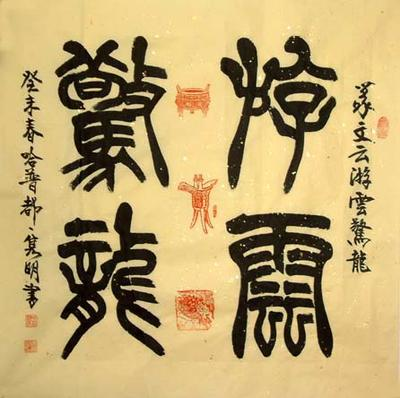 篆文云游雲驚龍
游雲
驚龍
癸未春哈普都·隽明書